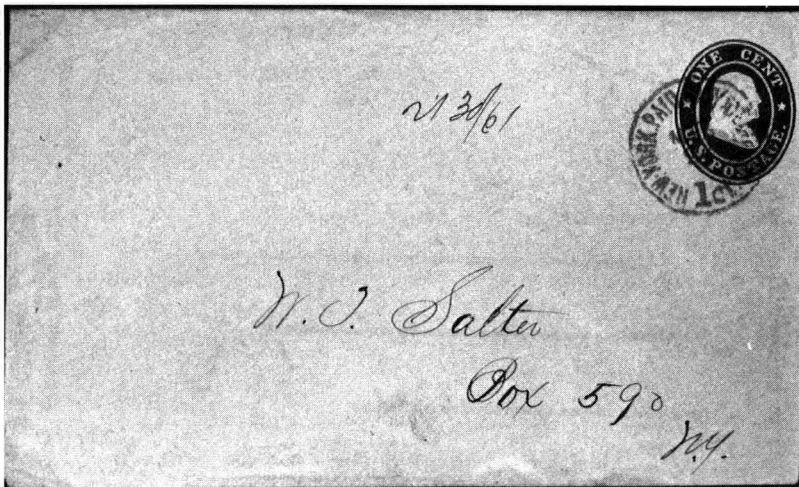 ONE CENT
U.S. POSTAGE.
NEW YORK. PAID
1 CT.
30/61
W. J. Salter
Box 590
N.Y.